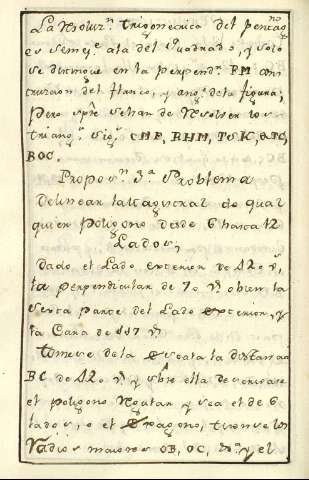 La Resoluz.n trigonometrica del pentag.no
es semej.e ala del Quadrado, y solo
se distingue en la perpend.r RM ani
del flanco, y ang.s dela figura;
Pero sp.re sehan de Resolver los
triang.s sig.s CMF, RHM,
BOC.
Propos.n 3.a Problema
Delinear la Magistral de qual
quier Poligono desde 6 hasta 12
Lados,
Dado el Lado exterior de 120 v.s,
la perpendicular de 20 v.s o bien la
sexta parte del Lado exterior, y
la Cara de v.s
Tomese de la escala la distancia
BC de 120 v.s y sobre ella descrivase
el poligono Regular y sea el de 6
lados, o el Exagono, tirense los
Radios maiores OB, OC, y el